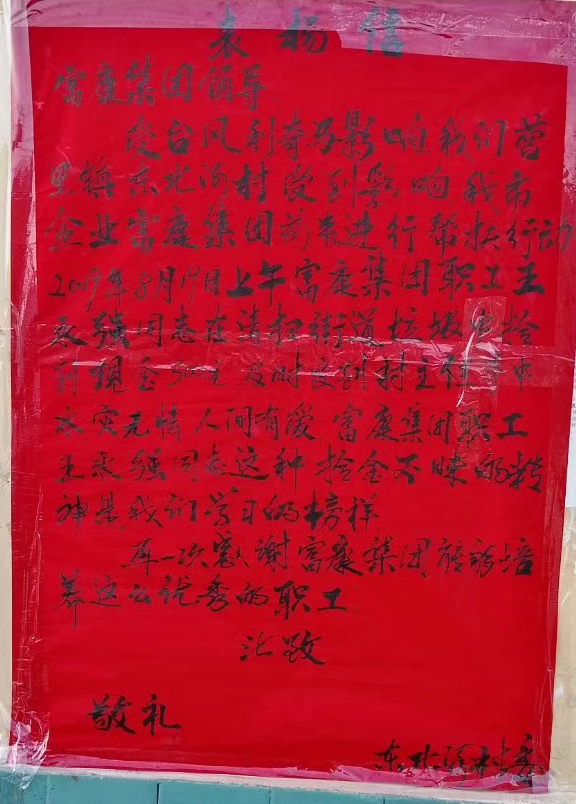 表扬信
富康集团领导
受台风利奇马影响我们营
里镇东北河村受到影响我市
企业富康集团前来进行帮扶行动
2019年8月19日上午富康集团职工王
永强同志在清扫街道垃圾中拾
到现金500元及时交到村主任手中
水灾无情人间有爱富康集团职工
王永强同志这种拾金不昧的精
神是我们学习的榜样
再一次感谢富康集团能够培
养这么优秀的职工
此致
敬礼
东北河村委